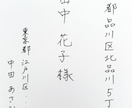 都品川区北品川5丁
田中花子様
東京都江戸川区
中田あさ